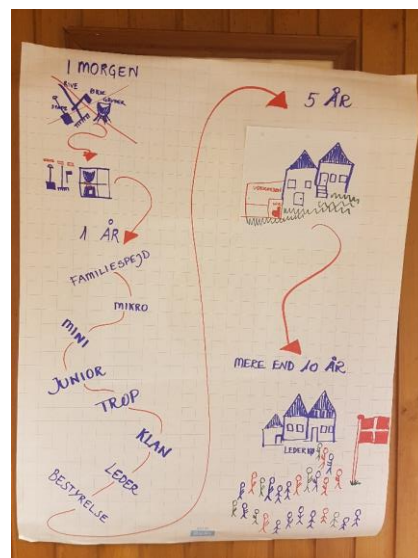 I MORGEN
RIVE
GRYDER
1 ÅR
FAMILIESPEJD
MIKRO
MINI
JUNIOR
TROP
KLAN
LEDER
BESTYRELSE
5 ÅR
MERE END 10 ÅR
LEDER